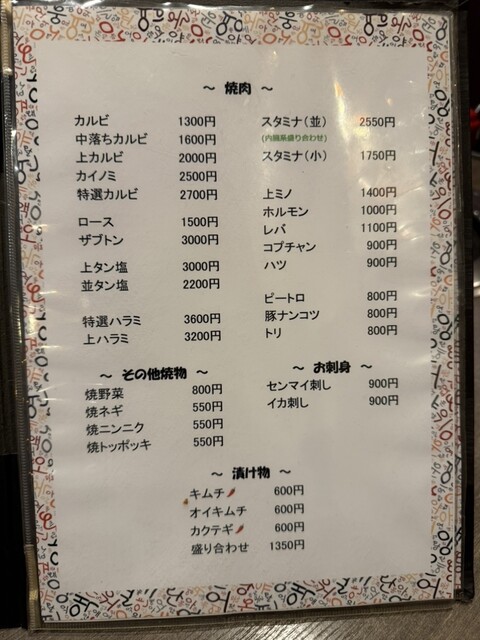 ～ 焼肉 ～
カルビ 1300円
中落ちカルビ 1600円
上カルビ 2000円
カイノミ 2500円
特選カルビ 2700円
ロース 1500円
ザブトン 3000円
上タン塩 3000円
並タン塩 2200円
特選ハラミ 3600円
上ハラミ 3200円
スタミナ（並） 2550円
(内臓系盛り合わせ)
スタミナ（小） 1750円
上ミノ 1400円
ホルモン 1000円
レバ 1100円
コプチャン 900円
ハツ 900円
ピートロ 800円
豚ナンコツ 800円
トリ 800円
～ その他焼物 ～
焼野菜 800円
焼ネギ 550円
焼ニンニク 550円
焼トッポッキ 550円
～ お刺身 ～
センマイ刺し 900円
イカ刺し 900円
～ 漬け物 ～
キムチ🌶 600円
オイキムチ 600円
カクテギ🌶 600円
盛り合わせ 1350円